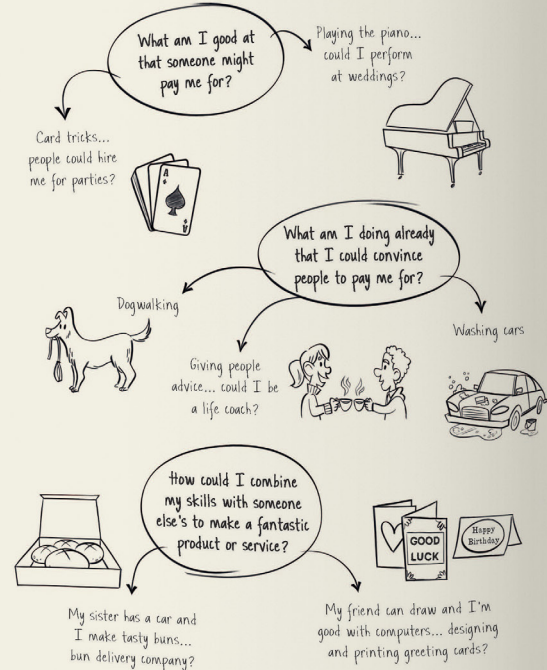 What am I good at
that someone might
pay me for?
Playing the piano...
could I perform
at weddings?
Card tricks...
people could hire
me for parties?
A
A
What am I doing already
that I could convince
people to pay me for?
Dogwalking
Giving people
advice... could I be
a life coach?
Washing cars
How could I combine
my skills with someone
else's to make a fantastic
product or service?
GOOD
LUCK
Happy
Birthday
My sister has a car and
I make tasty buns...
bun delivery company?
My friend can draw and I'm
good with computers... designing
and printing greeting cards?